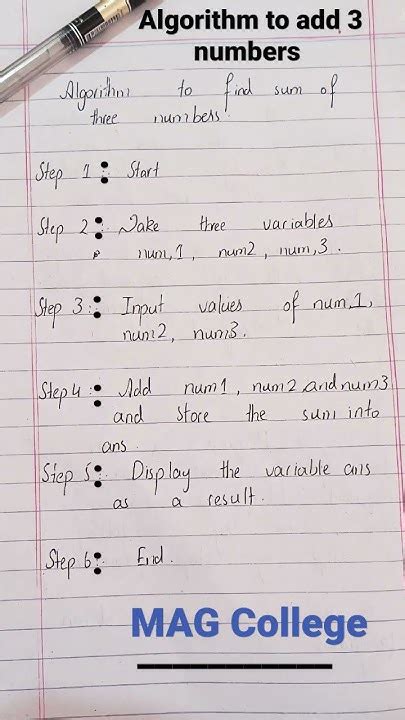 Algorithm to add 3
numbers
Algorithm to find sum of
three numbers.
Step 1: Start
Step 2: Take three variables
num,1, num2, num,3.
Step 3: Input values of num,1,
num2, num3.
Step 4: Add num1, num2 and num3
and store the sum into
ans.
Step 5: Display the variable ans
as a result.
Step 6: End.
MAG College